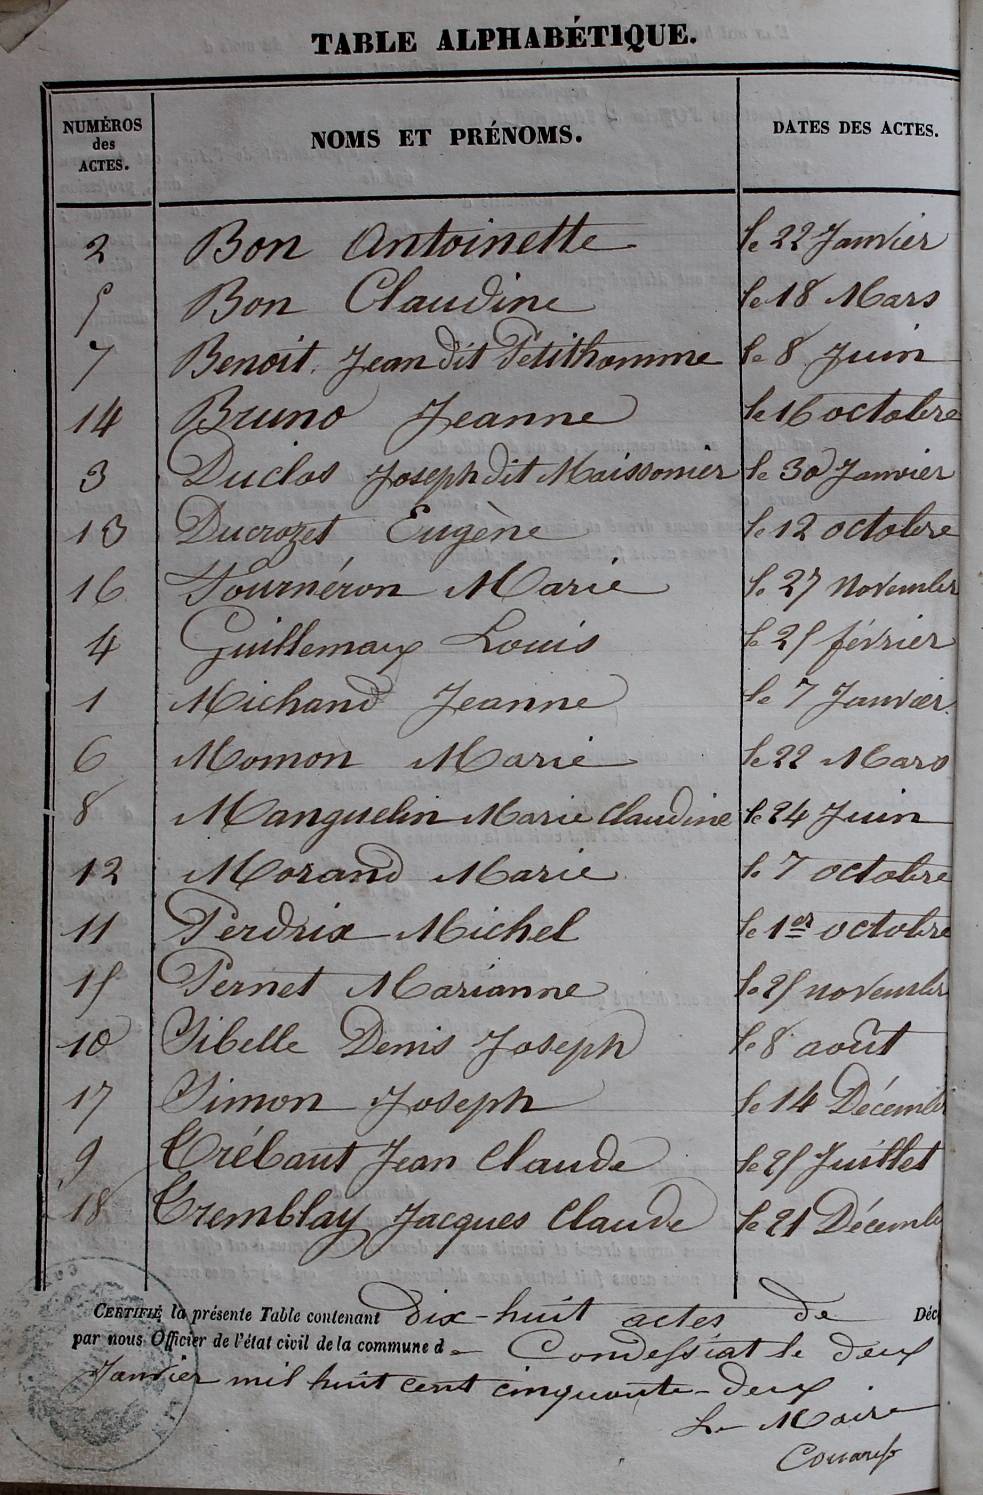 TABLE ALPHABÉTIQUE.
NUMÉROS des ACTES. NOMS ET PRÉNOMS. DATES DES ACTES.
2 Bon Antoinette le 22 Janvier
5 Bon Claudine le 18 Mars
7 Benoit Jean dit Petithomme le 8 Juin
14 Bruno Jeanne le 16 octobre
3 Duclos Joseph dit Maissonnier le 30 Janvier
13 Ducrozet Eugène le 12 octobre
16 Fournéron Marie le 27 novembre
4 Guillemaux Louis le 25 février
1 Michand Jeanne le 7 Janvier
6 Momon Marie le 22 Mars
8 Manguelin Marie Claudine le 24 Juin
12 Morand Marie le 7 octobre
11 Perdrix Michel le 1er octobre
15 Pernet Marianne le 25 novembre
10 Sibelle Denis Joseph le 8 août
17 Simon Joseph le 14 Décemb
9 Trébaut Jean Claude le 25 Juillet
18 Tremblay Jacques Claude le 21 Décemb
CERTIFIÉ la présente Table contenant dix-huit actes de Déc
par nous Officier de l'état civil de la commune d Condessiat le deux
Janvier mil huit cent cinquante-deux
Le Maire